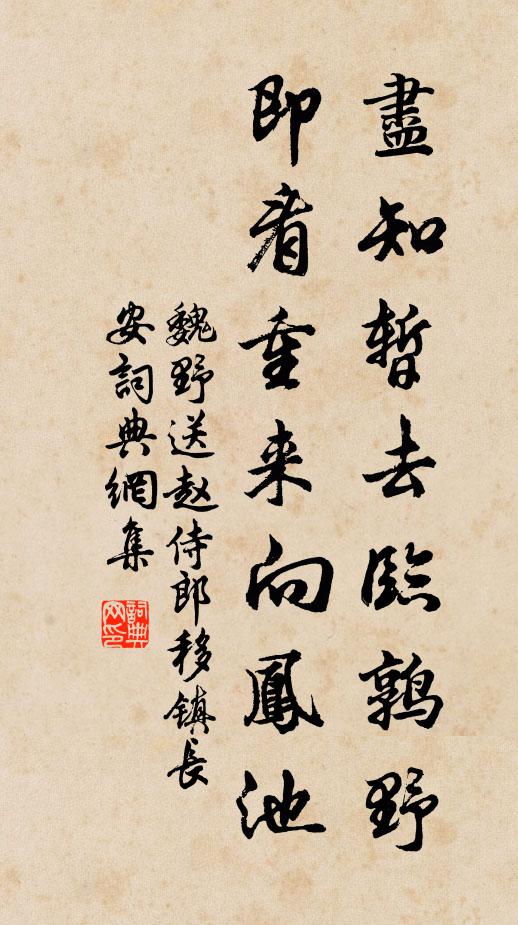 盡知暫去臨鶉野
即看重来向鳳池
魏野送赵侍郎移镇長
安詞典網集
詞典网印